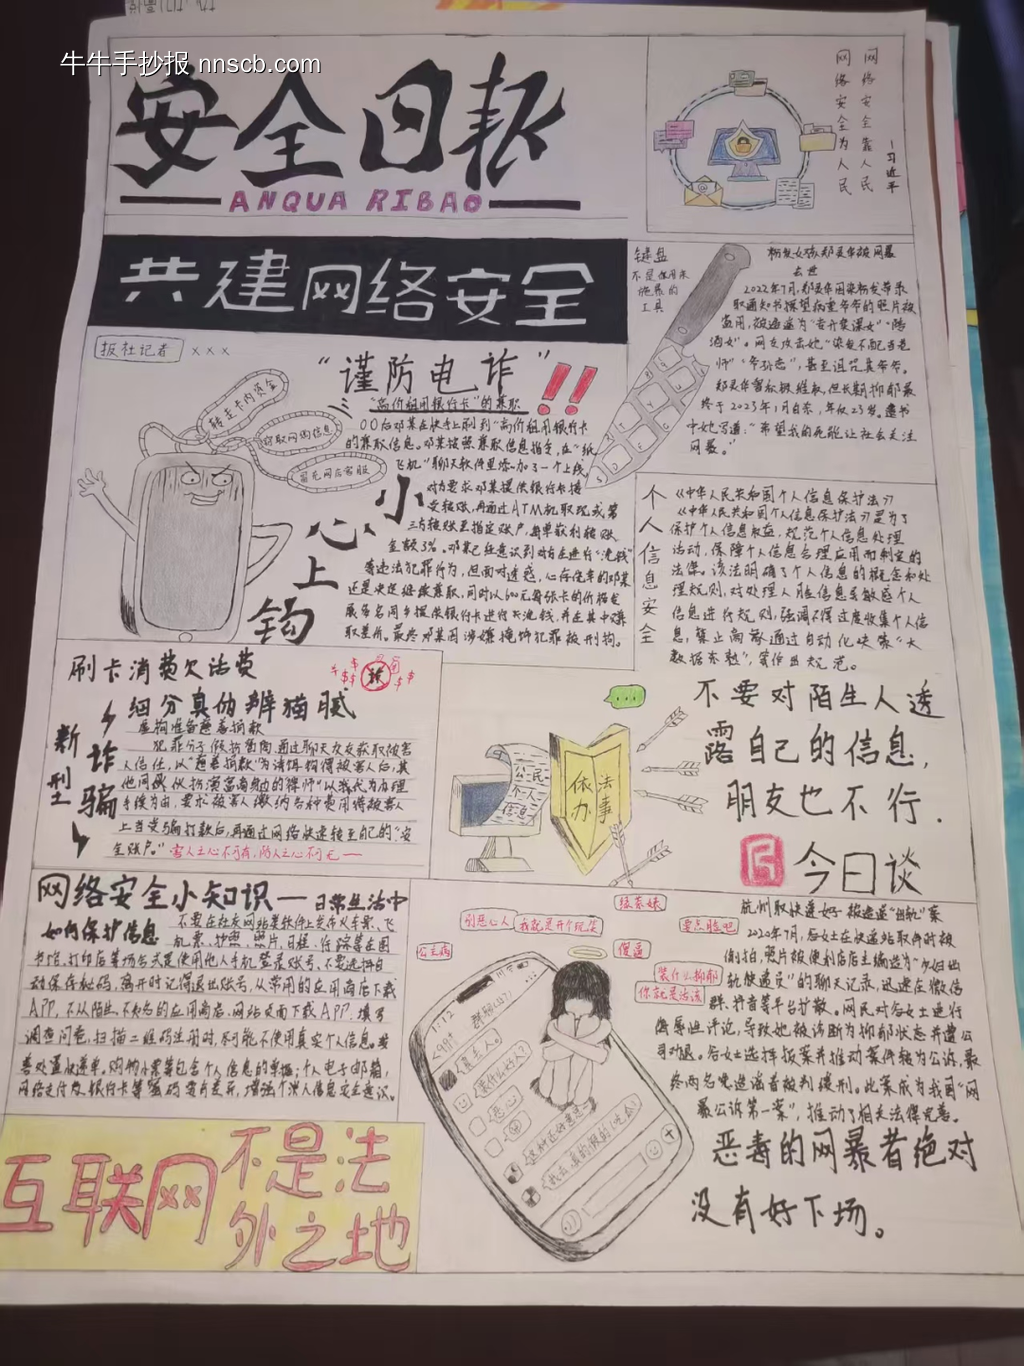 牛牛手抄报 nnscb.com
安全日报
ANQUA RIBAO
网络安全为人民
网络安全靠人民
—习近平
共建网络安全
报社记者 ×××
“谨防电诈”!!
“高价租用银行卡”的兼职
00后邓某在快手上刷到“高价租用银行卡”
的兼职信息。邓某按照兼职信息指定,在“纸
飞机”聊天软件里添加了一个上线,
对方要求邓某提供银行卡接
受转账,再通过ATM机取现或第
三方转账至指定账户,每单获利转账
金额3%。邓某已经意识到对方在进行“洗钱”
等违法犯罪行为,但面对诱惑,心存侥幸的邓某
还是决定继续兼职,同时以600元每张卡的价格发
展多名同学提供银行卡进行去洗钱,并在其中赚
取差价。最终邓某因涉嫌掩饰犯罪被刑拘。
转走卡内资金
窃取网购信息
冒充网店客服
小心上钩
键盘
不是你用来
施暴的
工具
粉发女孩郑灵华被网暴
去世
2022年7月,郑灵华因染粉发带录
取通知书探望病重爷爷的照片被
盗用,被造谣为“专升本课女”“陪
酒女”。网友攻击她“染发不配当老
师”“爷孙恋”,甚至诅咒其爷爷。
郑灵华曾积极维权,但长期抑郁最
终于2023年1月自杀,年仅23岁。遗书
中她写道:“希望我的死能让社会关注
网暴。”
个人信息安全
《中华人民共和国个人信息保护法》
《中华人民共和国个人信息保护法》是为了
保护个人信息权益,规范个人信息处理
活动,保障个人信息合理应用而制定的
法律。该法明确了个人信息的概念和处
理规则,对处理人脸信息等敏感个人
信息进行规则,强调不得过度收集个人信
息,禁止商家通过自动化决策“大
数据杀熟”,等作出规范。
刷卡消费欠话费
细分真伪辨猫腻
新型诈骗
虚构准备慈善捐款
犯罪分子假扮商贾,通过聊天交友获取被害
人信任,以“慈善捐款”为诱饵物得被害人后,其
他同伙扮演富商身边的律师“以我代为办理
手续为由,要求被害人缴纳各种费用待被害人
上当受骗打款后,再通过网络快速转至自己的“安
全账户。”害人之心不可有,防人之心不可无—
公民个人信息
依法办事
不要对陌生人透
露自己的信息,
朋友也不行.
今日谈
网络安全小知识—日常生活中
如何保护信息
不要在社交网站类软件上发布火车票、飞
机票、护照、照片、日程、行踪等在图
书馆,打印店等场合尽量使用他人手机登录账号、不要选择自
动保存秘码,离开时记得退出账号,从常用的应用商店下载
APP,不从陌生、不知名的应用商店、网站页面下载APP.填写
调查问卷,扫描二维码注册时,尽可能不使用真实个人信息。妥
善处置快递单,购物小票等包含个人信息的单据;个人电子邮箱,
网络支付及银行卡等密码要有差异,增强个人信息安全意识。
互联网不是法
外之地
公主病
别恶心人
我就是开个玩笑
绿茶婊
要点脸吧
傻逼
装什么抑郁
你就是活该
1:12
<99+ 群聊(47)
杭州取快递女子被造谣“出轨”案
2020年7月,谷女士在快递站取件时被
偷拍,照片被便利店店主编造为“少妇出
轨快递员”的聊天记录,迅速在微信
群、抖音等平台扩散。网民对谷女士进行
侮辱性评论,导致她被诊断为抑郁状态并遭公
司劝退。谷女士选择报案并推动案件转为公诉,最
终两名嫌造谣者被判缓刑。此案成为我国“网
暴公诉第一案”,推动了相关法律完善。
恶毒的网暴者绝对
没有好下场。